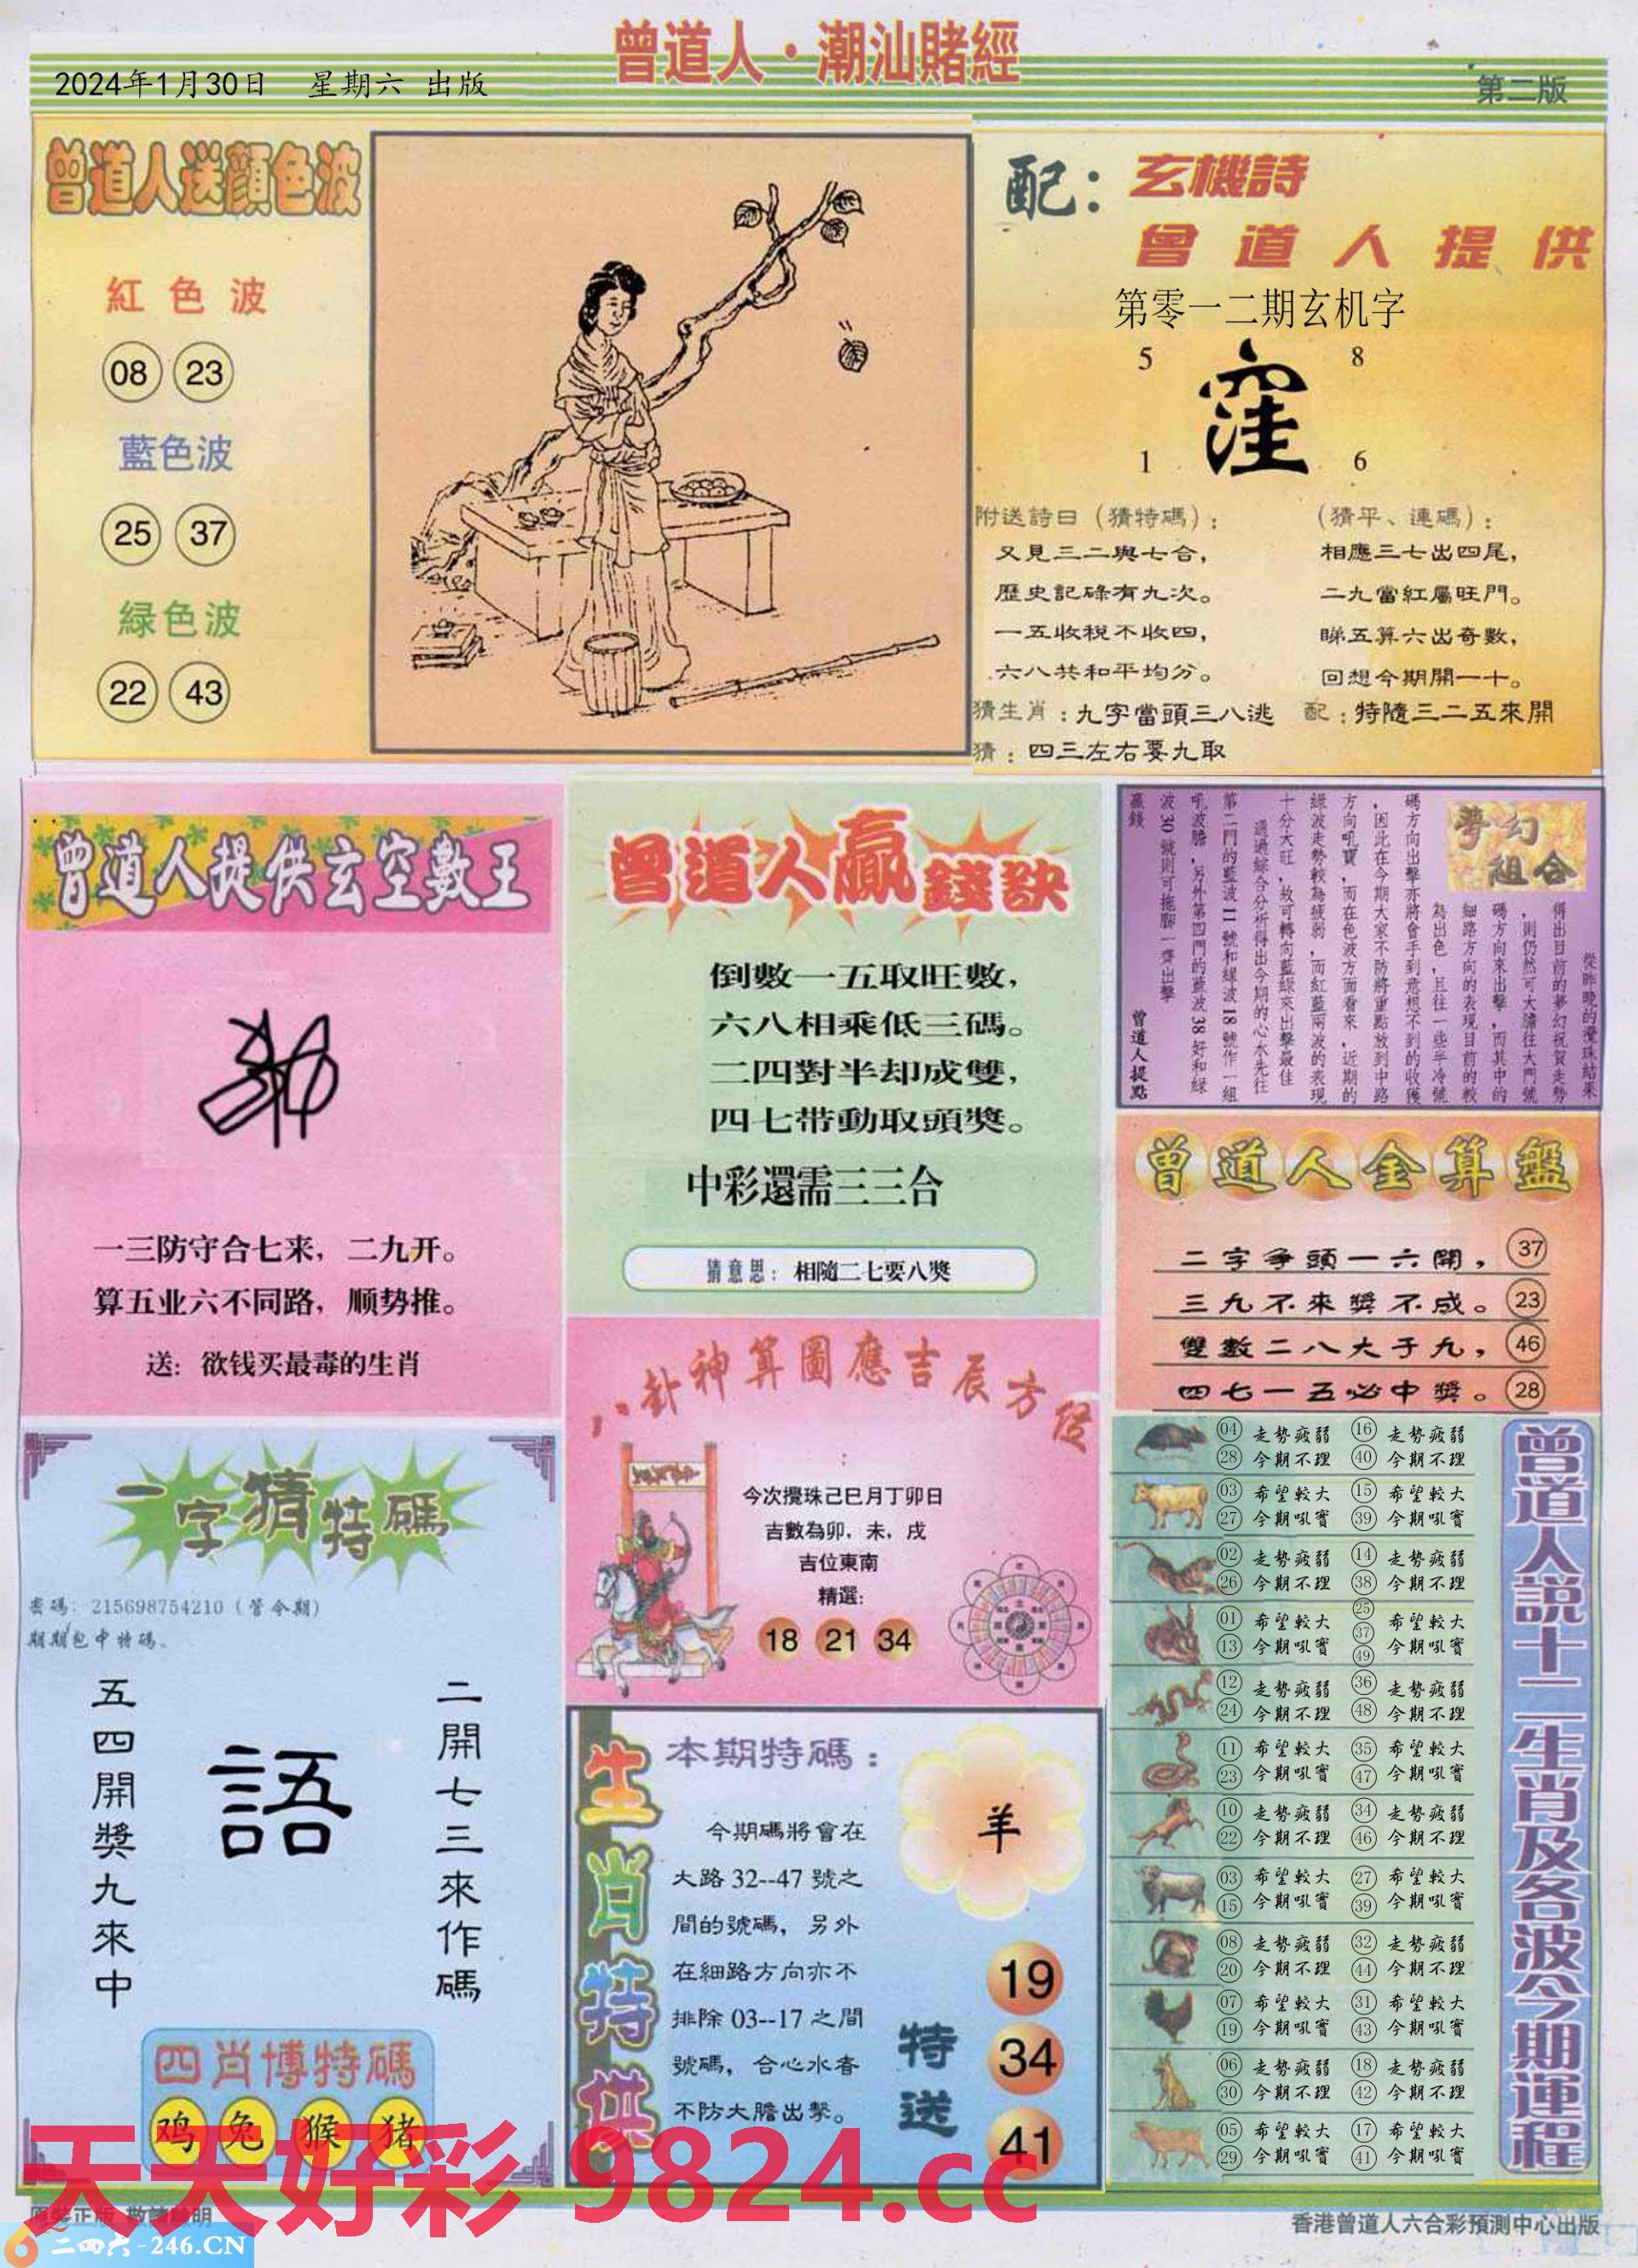 曾道人·潮汕賭經
2024年1月30日 星期六 出版
第二版
曾道人送顔色波
紅色波
08 23
藍色波
25 37
緑色波
22 43
配：玄機詩
曾道人提供
第零一二期玄机字
5 8
窪
1 6
附送詩曰（猜特碼）：
又見三二與七合，
歷史記碌有九次。
一五收稅不收四，
六八共和平均分。
（猜平、連碼）：
相應三七出四尾，
二九當紅屬旺門。
睇五算六出奇數，
回想今期開一十。
猜生肖：九字當頭三八逃 配：特隨三二五來開
猜：四三左右要九取
曾道人提供玄空數王
一三防守合七来，二九开。
算五业六不同路，顺势推。
送：欲钱买最毒的生肖
曾道人贏錢訣
倒數一五取旺數，
六八相乘低三碼。
二四對半却成雙，
四七带動取頭獎。
中彩還需三三合
猜意思：相隨二七要八獎
夢幻組合
從昨晚的攪珠結果
得出目前的夢幻祝賀走勢
，則仍然可大膽往大門號
碼方向來出擊，而其中的
細路方向的表現目前的較
為出色，且往一些半冷號
碼方向出擊亦將會手到意想不到的收獲
，因此在今期大家不防將重點放到中路
方向吼寶，而在色波方面看來，近期的
綠波走勢較為疲弱，而紅藍兩波的表現
十分大旺，故可轉向藍綠來出擊最佳
通過綜合分析得出今期的心水先往
第二門的藍波11號和緑波18號作一組
吼波膽，另外第四門的藍波38好和緑
波30號則可拖腳一齊出擊
贏錢 曾道人提點
曾道人金算盤
二字争頭一六開，37
三九不來獎不成。23
雙數二八大于九，46
四七一五必中獎。28
八卦神算圖應吉辰方位
今次攪珠己巳月丁卯日
吉數為卯，未，戌
吉位東南
精選：
18 21 34
一字猜特碼
密碼：215698754210（管今期）
期期包中特碼。
二開七三來作碼
語
五四開獎九來中
四肖博特碼
鸡 兔 猴 猪
生肖特供
本期特碼：
今期碼將會在
大路32--47號之
間的號碼，另外
在細路方向亦不
排除03--17之間
號碼，合心水者
不防大膽出擊。
羊
特送
19
34
41
曾道人說十二生肖及各波今期運程
04 走勢疲弱 16 走勢疲弱
28 今期不理 40 今期不理
03 希望較大 15 希望較大
27 今期吼寶 39 今期吼寶
02 走勢疲弱 14 走勢疲弱
26 今期不理 38 今期不理
01 希望較大 25 37 希望較大
13 今期吼寶 49 今期吼寶
12 走勢疲弱 36 走勢疲弱
24 今期不理 48 今期不理
11 希望較大 35 希望較大
23 今期吼寶 47 今期吼寶
10 走勢疲弱 34 走勢疲弱
22 今期不理 46 今期不理
03 希望較大 27 希望較大
15 今期吼寶 39 今期吼寶
08 走勢疲弱 32 走勢疲弱
20 今期不理 44 今期不理
07 希望較大 31 希望較大
19 今期吼寶 43 今期吼寶
06 走勢疲弱 18 走勢疲弱
30 今期不理 42 今期不理
05 希望較大 17 希望較大
29 今期吼寶 41 今期吼寶
天天好彩 9824.cc
原裝正版 敬請驗明
二四六-246.CN
香港曾道人六合彩預測中心出版